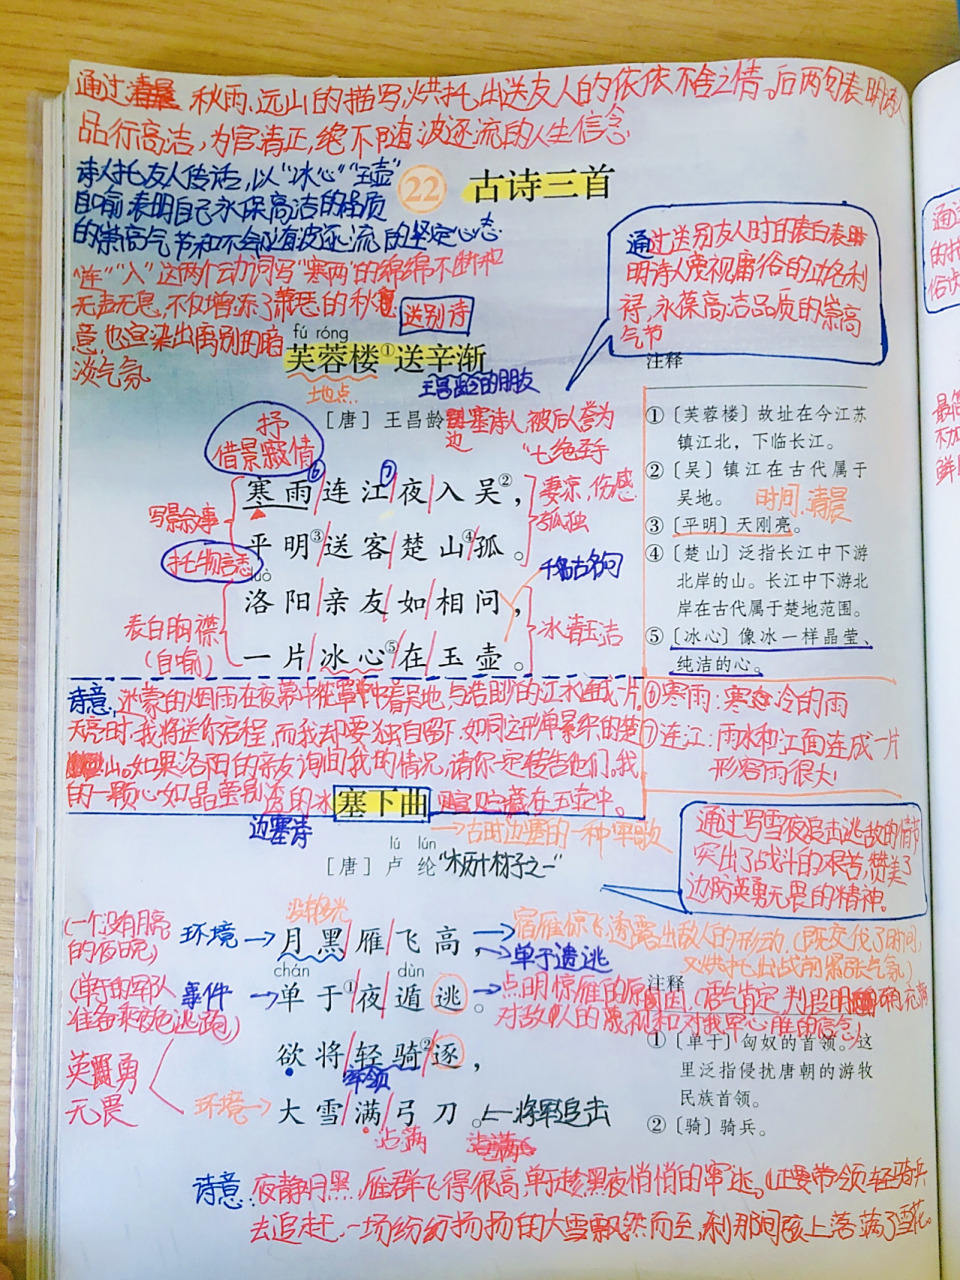 通过清晨秋雨、远山的描写,烘托出送友人的依依不舍之情。后两句表明诗人
品行高洁,为官清正,绝不随波逐流的人生信念
诗人托友人传话,以“冰心”“玉壶”
自喻表明自己永保高洁的品质
的崇高气节和不会随波逐流的坚定心志
22 古诗三首
“连”“入”这两个动词写“寒雨”的绵绵不断和
无声无息,不仅增添了萧瑟的秋
意也宣染出离别的暗
淡气氛
送别诗
通过送别友人时的表白表
明诗人蔑视庸俗的功名利
禄,永葆高洁品质的崇高
气节
fú róng
芙蓉楼①送辛渐
地点
王昌龄的朋友
[唐]王昌龄
边塞诗人,被后人誉为
“七绝圣手
抒
借景 情
⑥ ⑦
寒雨/连江/夜/入吴②,
平明③/送客/楚山④/孤。
luò
洛阳/亲友/如相问,
一片/冰心⑤/在玉壶。
写景叙事
托物言志
表白胸襟
(自喻)
凄凉,伤感
孤独
千古名句
冰清玉洁
注释
①〔芙蓉楼〕故址在今江苏
镇江北,下临长江。
②〔吴〕镇江在古代属于
吴地。
时间:清晨
③〔平明〕天刚亮。
④〔楚山〕泛指长江中下游
北岸的山。长江中下游北
岸在古代属于楚地范围。
⑤〔冰心〕像冰一样晶莹、
纯洁的心。
⑥寒雨:寒冷的雨
⑦连江:雨水和江面连成一片
形容雨很大!
诗意:迷蒙的烟雨在夜幕中笼罩着吴地,与浩渺的江水连成一片。
天亮时,我将送你启程,而我却要独自留下,如同这形单影织的楚
山。如果洛阳的亲友询问我的情况,请你一定转告他们。我
的一颗心如晶莹剔透的冰 贮藏在玉壶中。
塞下曲
边塞诗
→古时边塞的一种军歌
lú lún
[唐]卢纶
才子之一”
通过写雪夜追击逃敌的情节
突出了战斗的艰苦,赞美了
边防英勇无畏的精神。
(一个没有月亮
的夜晚)
环境→
没有月光
月黑/雁/飞高,
→宿雁惊飞透露出敌人的形动.(既交代了时间,
又烘托出战前紧张气氛)
→单于遗逃
(单于的军队
准备乘夜色逃跑)
事件→
chán dùn
单于①/夜遁逃。
→点明惊雁的原因.
对敌人的蔑视和对我军必胜的信念)
英勇
无畏
欲将/轻骑②/逐,
率领
环境→
大雪/满/弓刀。
←将军追击
沾满
注释
①〔单于〕匈奴的首领。这
里泛指侵扰唐朝的游牧
民族首领。
②〔骑〕骑兵。
诗意:夜静月黑,雁群飞得很高,单于趁黑夜悄悄的窜逃。正要带领轻骑兵
去追赶,一场纷纷扬扬的大雪飘然而至,刹那间 上落满了雪花。